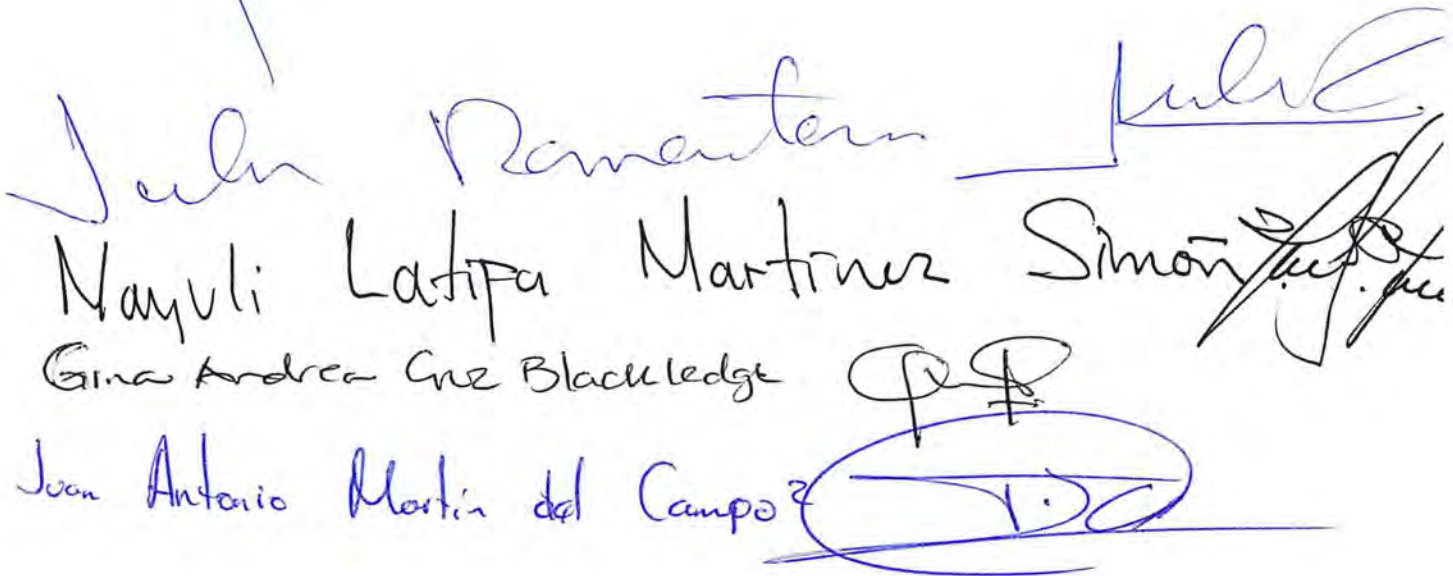 Julen Rementeria
Nayuli Latifa Martinez Simón
Gina Andrea Cruz Blackledge
Juan Antonio Martin del Campo